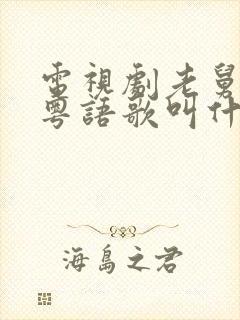 電視劇老舅
粵語歌叫什
海島之君